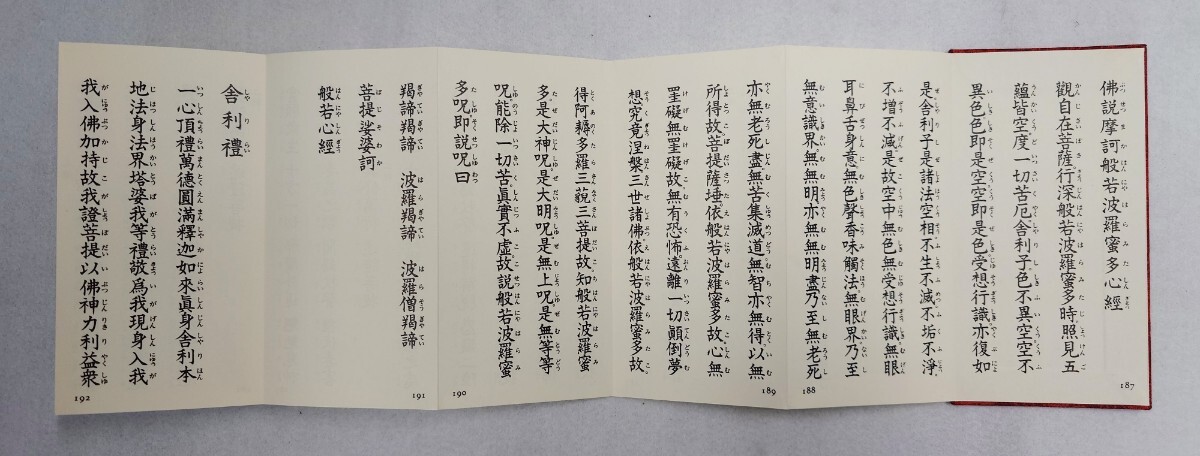 佛説摩訶般若波羅蜜多心經
觀自在菩薩行深般若波羅蜜多時照見五
蘊皆空度一切苦厄舍利子色不異空空不
異色色即是空空即是色受想行識亦復如
187
是舍利子是諸法空相不生不滅不垢不淨
不增不減是故空中無色無受想行識無眼
耳鼻舌身意無色聲香味觸法無眼界乃至
無意識界無無明亦無無明盡乃至無老死
188
亦無老死盡無苦集滅道無智亦無得以無
所得故菩提薩埵依般若波羅蜜多故心無
罣礙無罣礙故無有恐怖遠離一切顚倒夢
想究竟涅槃三世諸佛依般若波羅蜜多故
189
得阿耨多羅三藐三菩提故知般若波羅蜜
多是大神呪是大明呪是無上呪是無等等
呪能除一切苦眞實不虛故説般若波羅蜜
多呪即説呪曰
190
羯諦羯諦 波羅羯諦 波羅僧羯諦
菩提娑婆訶
般若心經
191
舍利禮
一心頂禮萬德圓滿釋迦如來眞身舍利本
地法身法界塔婆我等禮敬爲我現身入我
我入佛加持故我證菩提以佛神力利益衆
192